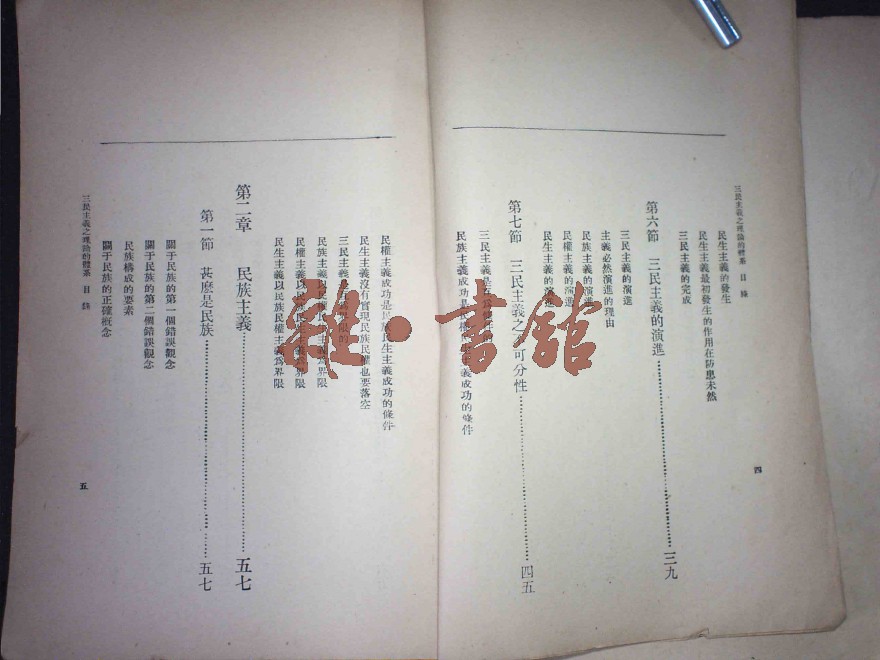 三民主義之理論的體系 目錄
民生主義的發生
民生主義最初發生的作用在防患未然
三民主義的完成
第六節 三民主義的演進 三九
三民主義的演進
主義必然演進的理由
民族主義的演進
民權主義的演進
民生主義的演進
第七節 三民主義之 可分性 四五
三民主義是
民族主義成功是民權 生主義成功的條件
四
民權主義成功是民族民生主義成功的條件
民生主義沒有實現民族民權也要落空
三民主義是 限的
民族主義以民權民 爲界限
民權主義以民族民生主義爲界限
民生主義以民族民權主義爲界限
第二章 民族主義 五七
第一節 甚麼是民族 五七
關于民族的第一個錯誤觀念
關于民族的第二個錯誤觀念
民族構成的要素
關于民族的正確概念
三民主義之理論的體系 目錄
五
雜·書館